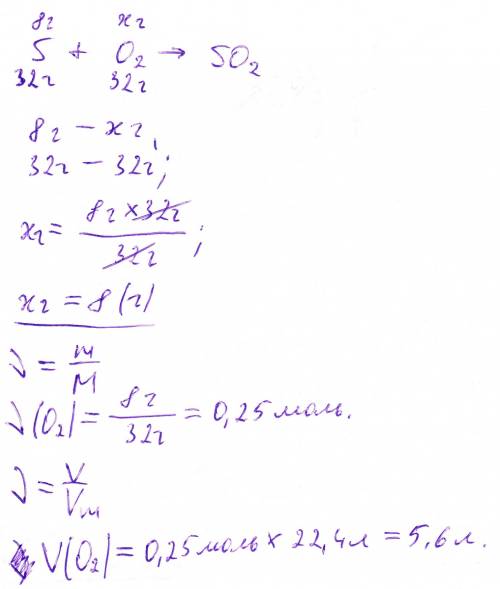 8г хг
S + O₂ → SO₂
32г 32г
8г – хг,
32г – 32г;
хг = 8г × 32г / 32г ;
хг = 8 (г)
ν = m / M
ν(O₂) = 8г / 32г = 0,25 моль.
ν = V / Vm
V(O₂) = 0,25 моль × 22,4 л = 5,6 л.